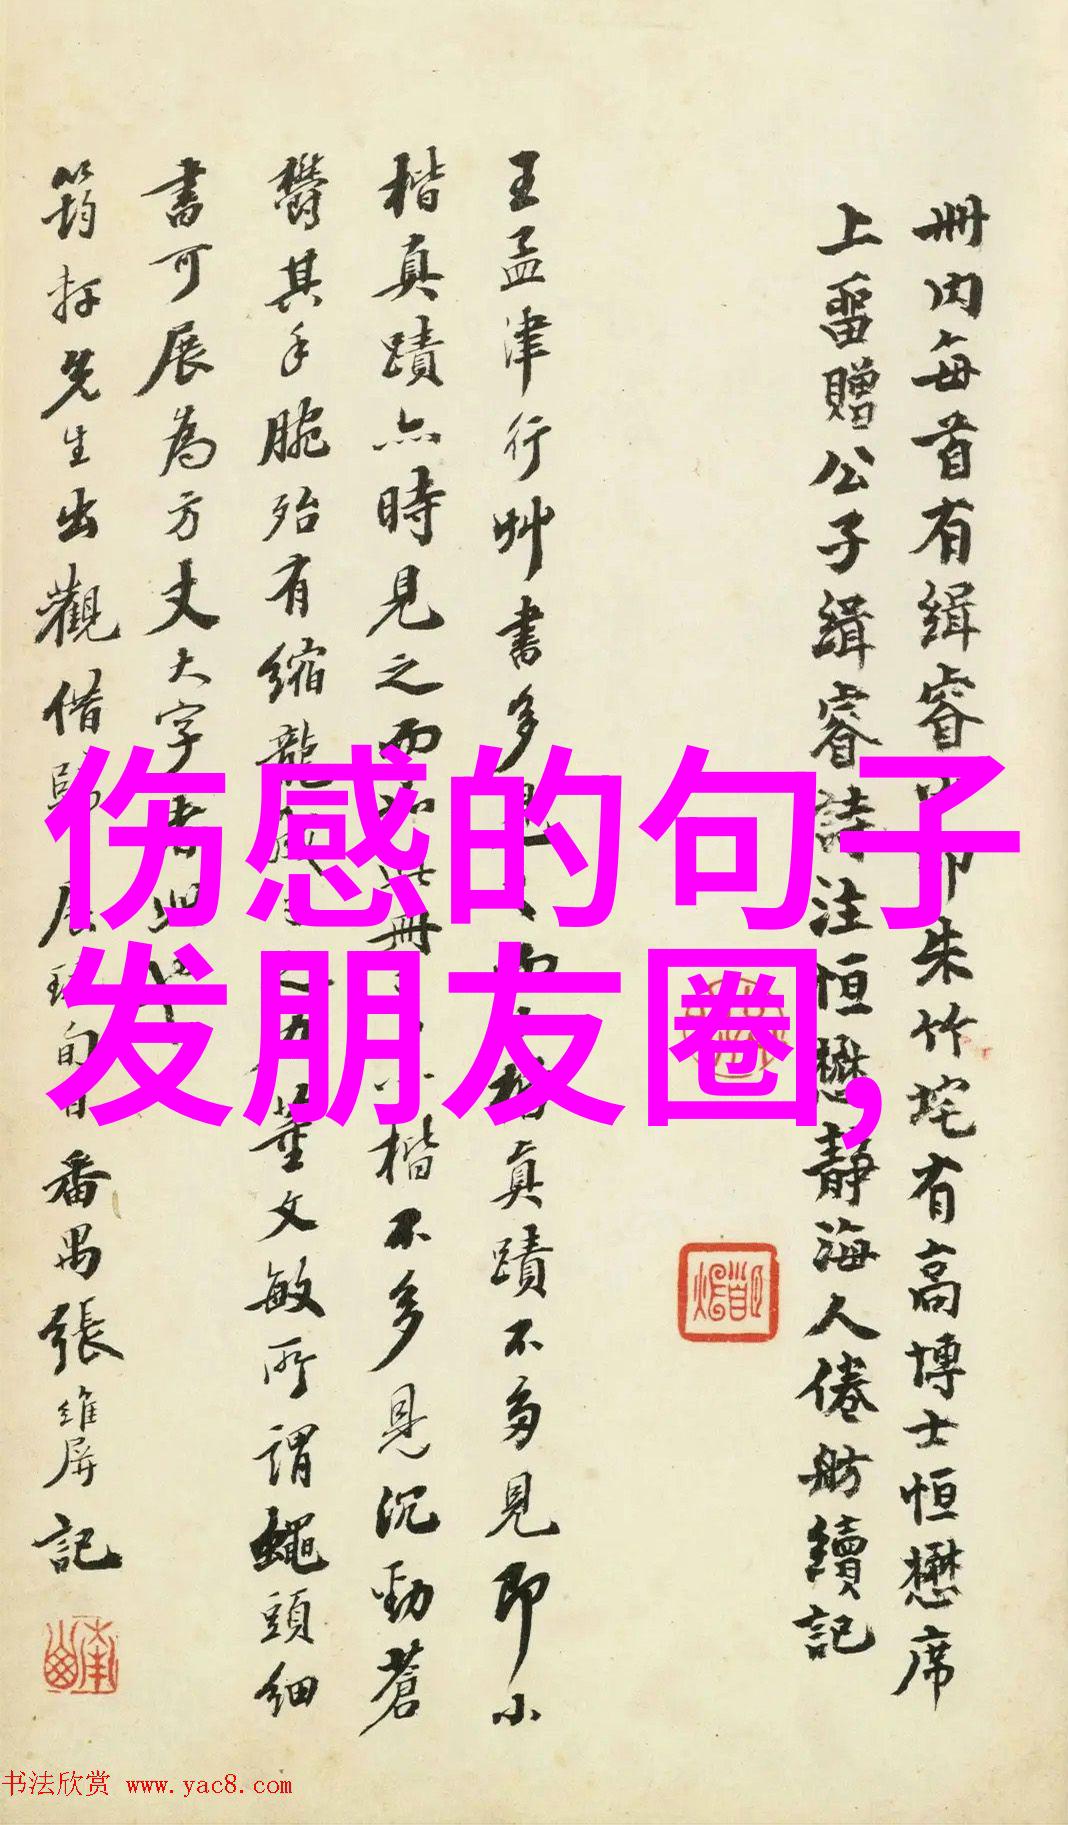 冊内每首有緝睿印朱竹垞有高博士恒懋席
上畱贈公子緝睿詩注恒懋靜海人倦舫續記
王孟津行艸書多見真蹟不多見即小
楷真蹟亦時見之而冊楷不多見沉勁蒼
欝其手腕殆有縮龍董文敏所謂蠅頭細
書可展為方丈大字者
筠打先生出觀借歸展番禺張維屏記
伤感的句子
发朋友圈,
书法欣赏 www.yac8.com